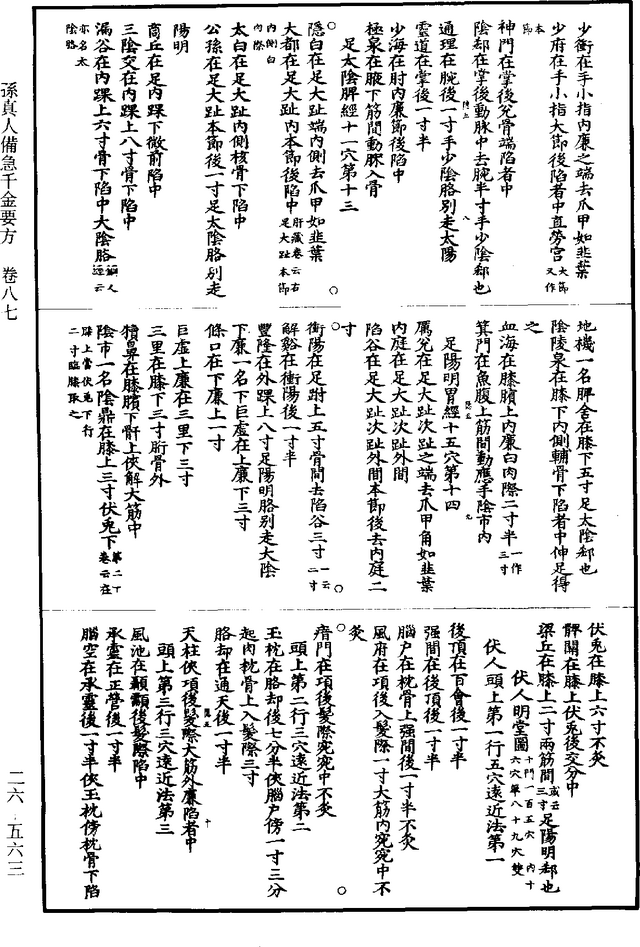 少衝在手小指內廉之端去爪甲如韭葉
少府在手小指大節後陷者中直勞宮大節又作
本節
神門在掌後兌骨端陷者中
陰郄在掌後動脉中去腕半寸手少陰郄也
通理在腕後一寸手少陰胳別走太陽
靈道在掌後一寸半
少海在肘內廉節後陷中
極泉在腋下筋間動脈入骨
足太陰脾經十一穴第十三
隱白在足大趾端內側去爪甲如韭葉
大都在足大趾內本節後陷中肝藏卷云右足大趾本節
內側白肉際
太白在足大趾內側核骨下陷中
公孫在足大趾本節後一寸足太陰胳別走
陽明
商丘在足內踝下微前陷中
三陰交在內踝上八寸骨下陷中
漏谷在內踝上六寸骨下陷中大陰胳銅人經云
亦名太陰胳
地機一名脾舍在膝下五寸足太陰郄也
陰陵泉在膝下內側輔骨下陷者中伸足得
之
血海在膝臏上內廉白肉際二寸半一作三寸
箕門在魚腹上筋間動應手陰市內
足陽明胃經十五穴第十四
厲兌在足大趾次趾之端去爪甲角如韭葉
內庭在足大趾次趾外間
陷谷在足大趾次趾外間本節後去內庭二
寸
衝陽在足跗上五寸骨間去陷谷三寸一云二寸
解谿在衝陽後一寸半
豐隆在外踝上八寸足陽明胳別走大陰
下廉一名下巨虛在上廉下三寸
條口在下廉上一寸
巨虛上廉在三里下三寸
三里在膝下三寸胻骨外
犢鼻在膝臏下骭上俠解大筋中
陰市一名陰鼎在膝上三寸伏兔下第二丁卷云在
膝上當伏兔下行二寸臨膝取之
伏兔在膝上六寸不灸
髀關在膝上伏兔後交分中
梁丘在膝上二寸兩筋間或云三寸足陽明郄也
伏人明堂圖十門一百五穴內十六穴單八十九穴雙
伏人頭上第一行五穴遠近法第一
後頂在百會後一寸半
强間在後頂後一寸半
腦戶在枕骨上强間後一寸半不灸
風府在項後入髮際一寸大筋內宛宛中不
灸
瘖門在項後髮際宛宛中不灸
頭上第二行三穴遠近法第二
玉枕在胳却後七分半俠腦戶傍一寸三分
起肉枕骨上入髮際三寸
胳却在通天後一寸半
天柱俠項後髮際大筋外廉陷者中
頭上第三行三穴遠近法第三
風池在顳顬後髮際陷中
承靈在正營後一寸半
腦空在承靈後一寸半俠玉枕傍枕骨下陷
孫真人備急千金要方　卷八七
二六·五六三